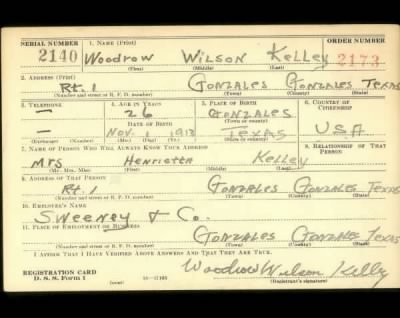 SERIAL NUMBER 1. NAME (Print) ORDER NUMBER
2140 Woodrow Wilson Kelley 2173
(First) (Middle) (Last)
2. ADDRESS (Print)
Rt. 1 Gonzales Gonzales Texas
(Number and street or R. F. D. number) (Town) (County) (State)
3. TELEPHONE 4. AGE IN YEARS 5. PLACE OF BIRTH 6. COUNTRY OF CITIZENSHIP
— 26 Gonzales
DATE OF BIRTH (Town or county)
— Nov. 1 1913 Texas USA
(Exchange) (Number) (Mo.) (Day) (Yr.) (State or country)
7. NAME OF PERSON WHO WILL ALWAYS KNOW YOUR ADDRESS 8. RELATIONSHIP OF THAT PERSON
Mrs Henrietta Kelley
(Mr. Mrs. Miss) (First) (Middle) (Last)
9. ADDRESS OF THAT PERSON
Rt. 1 Gonzales Gonzales Texas
(Number and street or R. F. D. number) (Town) (County) (State)
10. EMPLOYER'S NAME
Sweeney & Co.
11. PLACE OF EMPLOYMENT OR BUSINESS
Gonzales Gonzales Texas
(Number and street or R. F. D. number) (Town) (County) (State)
I AFFIRM THAT I HAVE VERIFIED ABOVE ANSWERS AND THAT THEY ARE TRUE.
Woodrow Wilson Kelley
REGISTRATION CARD
D. S. S. Form 1 (Registrant's signature)